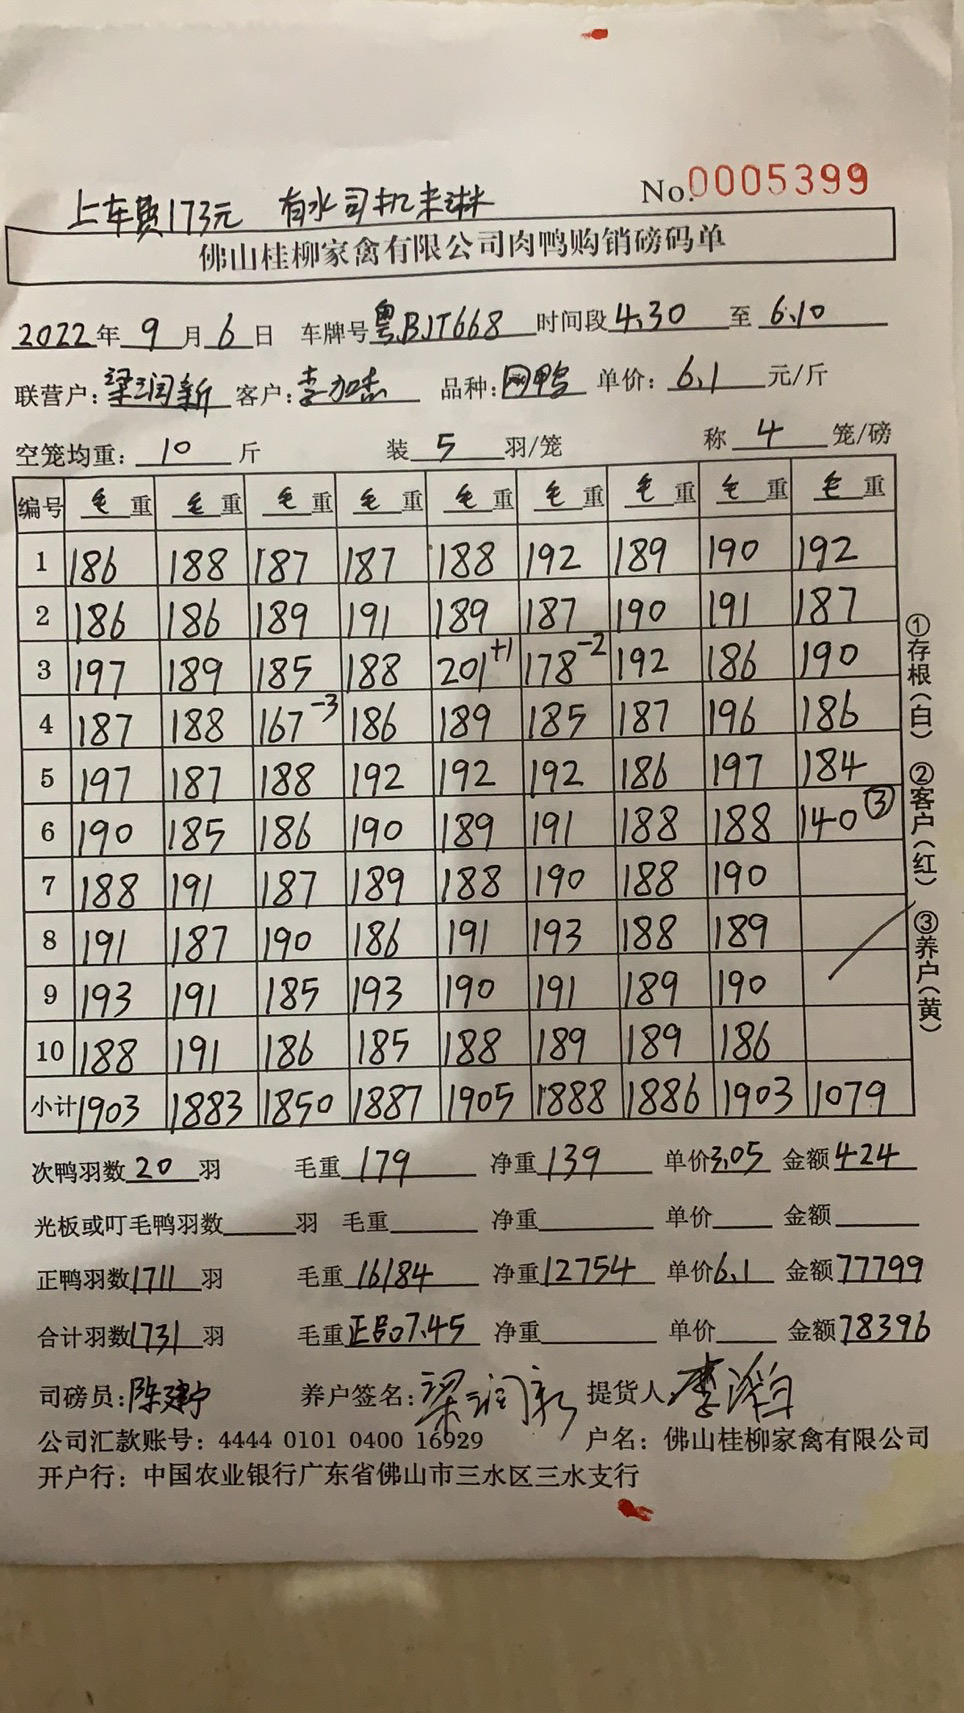 No.0005399
上车费173元 有水司机来淋
佛山桂柳家禽有限公司肉鸭购销磅码单
2022年9月6日 车牌号粤BJT668 时间段4.30至6.10
联营户:梁润新 客户:李加志 品种:网鸭 单价:6.1元/斤
空笼均重:10斤 装5羽/笼 称4笼/磅
编号 毛重 毛重 毛重 毛重 毛重 毛重 毛重 毛重 毛重
1 186 188 187 187 188 192 189 190 192
2 186 186 189 191 189 187 190 191 187
3 197 189 185 188 201+1 178-2 192 186 190
4 187 188 167-3 186 189 185 187 196 186
5 197 187 188 192 192 192 186 197 184
6 190 185 186 190 189 191 188 188 140③
7 188 191 187 189 188 190 188 190
8 191 187 190 186 191 193 188 189
9 193 191 185 193 190 191 189 190
10 188 191 186 185 188 189 189 186
小计 1903 1883 1850 1887 1905 1888 1886 1903 1079
①存根(白) ②客户(红) ③养户(黄)
次鸭羽数20羽 毛重179 净重139 单价3.05 金额424
光板或叮毛鸭羽数 羽 毛重 净重 单价 金额
正鸭羽数1711羽 毛重16184 净重12754 单价6.1 金额77799
合计羽数1731羽 毛重正品07.45 净重 单价 金额78396
司磅员:陈建宁 养户签名:梁润新 提货人:李
公司汇款账号:4444 0101 0400 16929 户名:佛山桂柳家禽有限公司
开户行:中国农业银行广东省佛山市三水区三水支行